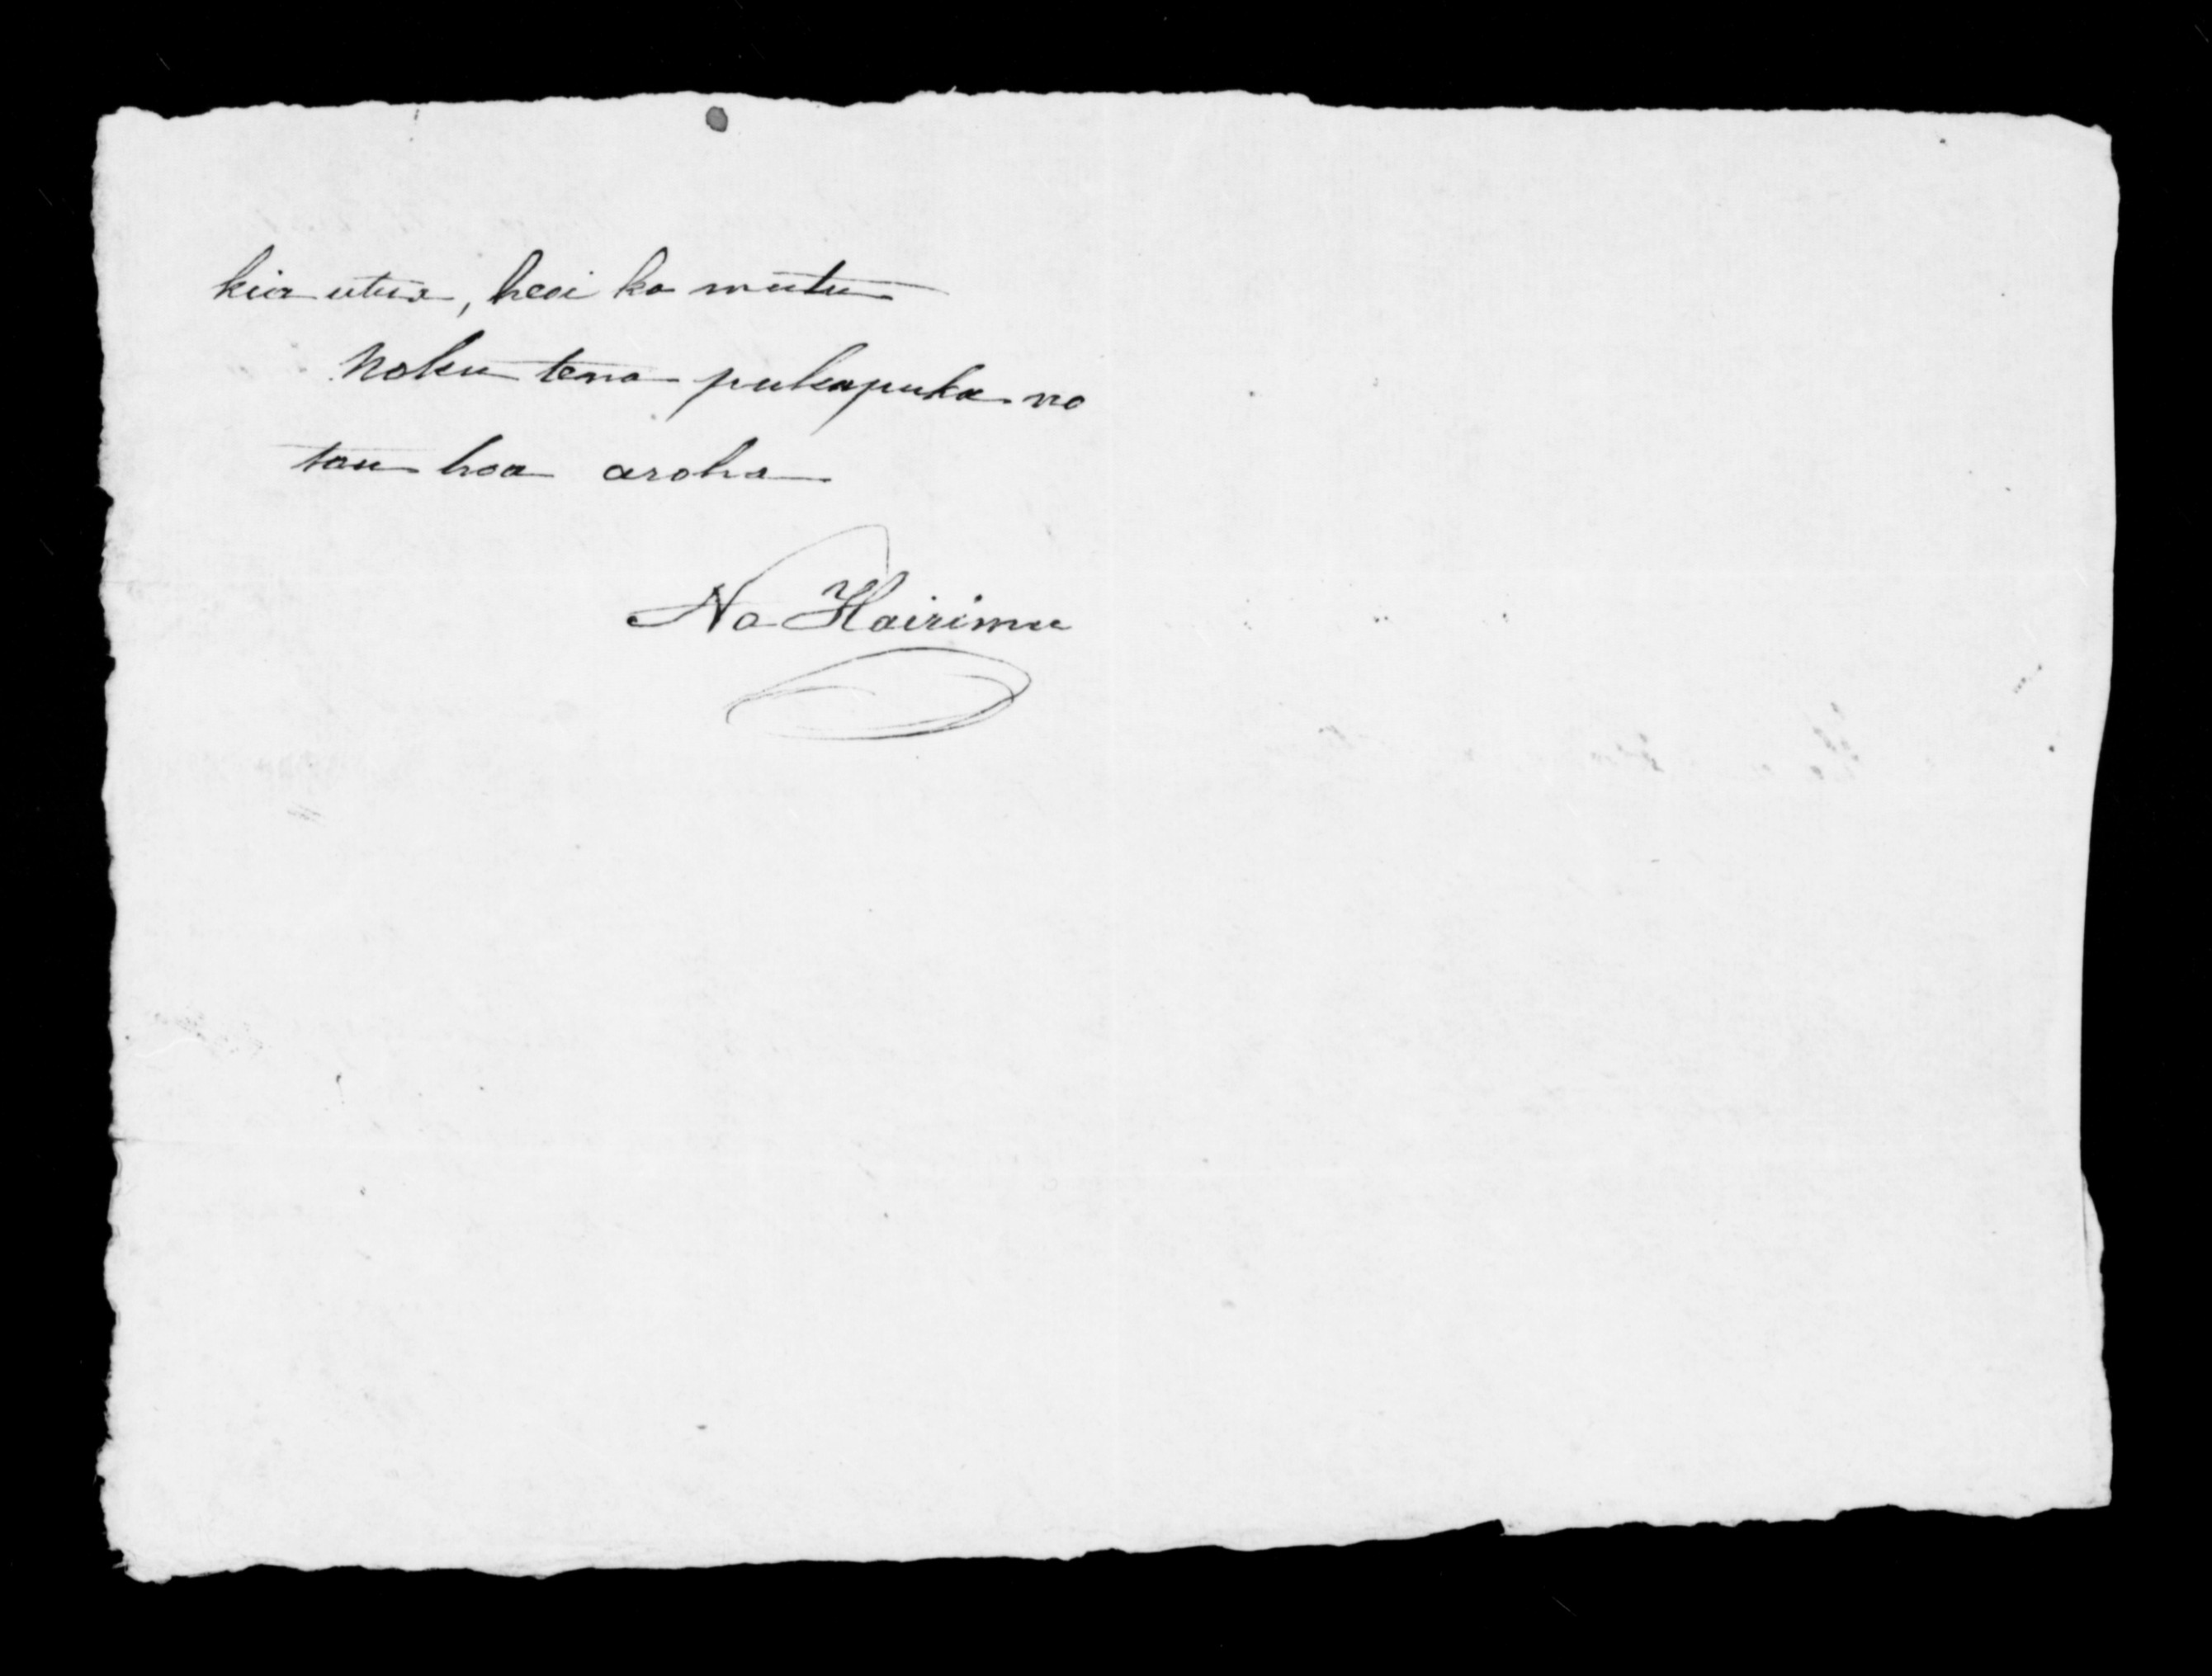 kia utua, heoi ka mutu
Noku tena pukapuka na
tau hoa aroha
Na Hairimu